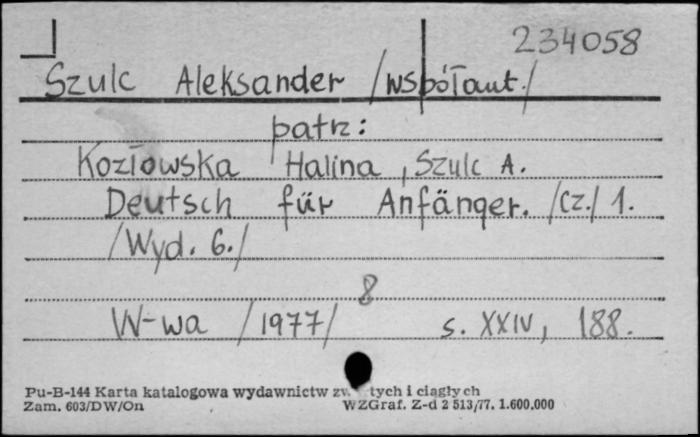 234058
Szulc Aleksander /współaut./
patrz:
Kozłowska Halina, Szulc A.
Deutsch für Anfänger. /Cz./ 1.
/Wyd. 6./
8
W-wa /1977/ s. XXIV, 188.
Pu-B-144 Karta katalogowa wydawnictw zw tych i ciągłych
Zam. 603/DW/On WZGraf. Z-d 2 513/77. 1.600,000